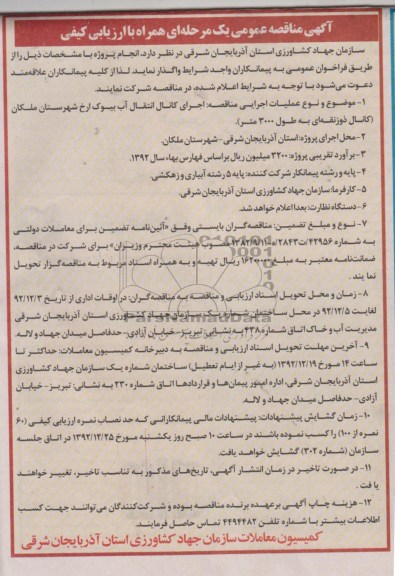 آگهی مناقصه عمومی یک مرحله‌ای همراه با ارزیابی کیفی
سازمان جهاد کشاورزی استان آذربایجان شرقی در نظر دارد، انجام پروژه با مشخصات ذیل را از
طریق فراخوان عمومی به پیمانکاران واجد شرایط واگذار نماید. لذا از کلیه پیمانکاران علاقه‌مند
دعوت می‌شود با توجه به شرایط اعلام شده، در مناقصه شرکت نمایند.
۱- موضوع و نوع عملیات اجرایی مناقصه: اجرای کانال انتقال آب بیوک ارخ شهرستان ملکان
(کانال ذوزنقه‌ای به طول ۳۰۰۰ متر).
۲- محل اجرای پروژه: استان آذربایجان شرقی - شهرستان ملکان.
۳- برآورد تقریبی پروژه: ۳۲۰۰ میلیون ریال براساس فهارس بهاء سال ۱۳۹۲.
۴- پایه و رشته پیمانکار شرکت کننده: پایه ۵ رشته آبیاری و زهکشی.
۵- کارفرما: سازمان جهاد کشاورزی استان آذربایجان شرقی.
۶- دستگاه نظارت: بعدا اعلام خواهد شد.
۷- نوع و مبلغ تضمین: مناقصه‌گران بایستی وفق «آئین‌نامه تضمین برای معاملات دولتی
به شماره ۴۲۹۵۶/ت۲۸۴۳ هیئت محترم وزیران» برای شرکت در مناقصه،
ضمانت‌نامه معتبر به مبلغ ریال تهیه و به همراه اسناد مربوط به مناقصه‌گزار تحویل
نمایند.
۸- زمان و محل تحویل اسناد ارزیابی و مناقصه به مناقصه‌گران: در اوقات اداری از تاریخ ۹۲/۱۲/۳
لغایت ۹۲/۱۲/۵ در محل ساختمان شماره یک سازمان جهاد کشاورزی استان آذربایجان شرقی
مدیریت آب و خاک اتاق شماره ۴۳۸ به نشانی: تبریز - خیابان آزادی - حدفاصل میدان جهاد و لاله.
۹- آخرین مهلت تحویل اسناد ارزیابی و مناقصه به دبیرخانه کمیسیون معاملات: حداکثر تا
ساعت ۱۴ مورخ ۱۳۹۲/۱۲/۱۹ (به غیر از ایام تعطیل) ساختمان شماره یک سازمان جهاد کشاورزی
استان آذربایجان شرقی، اداره امور پیمان‌ها و قراردادها اتاق شماره ۲۳۰ به نشانی: تبریز - خیابان
آزادی - حدفاصل میدان جهاد و لاله.
۱۰- زمان گشایش پیشنهادات: پیشنهادات مالی پیمانکارانی که حد نصاب نمره ارزیابی کیفی (۶۰
نمره از ۱۰۰) را کسب نموده باشند در ساعت ۱۰ صبح روز یکشنبه مورخ ۱۳۹۲/۱۲/۲۵ در اتاق جلسه
سازمان (شماره ۳۰۲) گشایش خواهد یافت.
۱۱- در صورت تاخیر در زمان انتشار آگهی، تاریخ‌های مذکور به تناسب تاخیر، تغییر خواهند
یافت.
۱۲- هزینه چاپ آگهی برعهده برنده مناقصه بوده و شرکت‌کنندگان می‌توانند جهت کسب
اطلاعات بیشتر با شماره تلفن ۴۴۹۴۴۸۲ تماس حاصل فرمایند.
کمیسیون معاملات سازمان جهاد کشاورزی استان آذربایجان شرقی